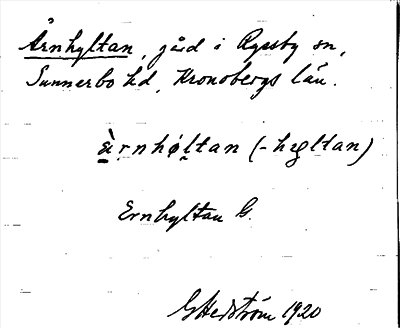 Årnhyltan, gård i Ryssby sn,
Sunnerbo hd, Kronobergs län.
ä̀rnhøltan (-hygltan)
Ernhyltan G.
GHedström 1920